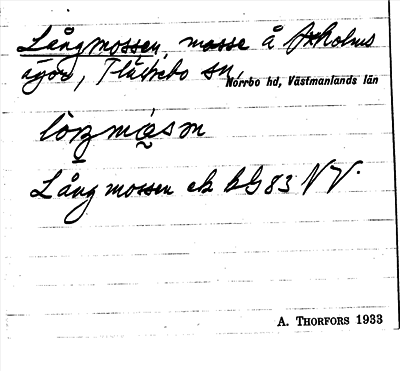 Långmossen, mosse å Axholms
ägor, Fläckebo sn,
Norrbo hd, Västmanlands län
Långmossen ek bl 83 NV.
A. THORFORS 1933